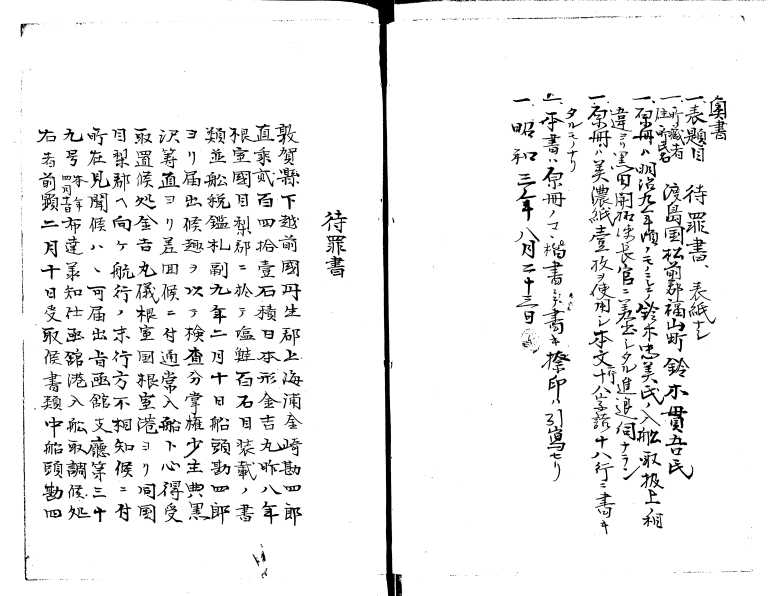 奥書
一、表題目 待罪書、表紙ナシ
一、所蔵者住所氏名 渡島国松前郡福山町 鈴木貫吾氏
一、原冊ハ明治九年頃ノモノニシテ鈴木忠美氏ノ入船取扱上ノ相
違ニヨリ黒田開拓使長官ニ差出シタル進退伺ナラン
一、原冊ハ美濃紙壹枚ヲ使用シ本文十八字詰十八行ニ書キ
タルモノナリ
一、本書ハ原冊ノママ楷書ニテ書キ捺印ハ引写セリ
一、昭和三年八月二十三日
待罪書
敦賀縣下越前國丹生郡上海浦金崎勘四郎
直乗貳百四拾壹石積日本形金吉丸昨八年
根室國目梨郡ニ於テ塩鮭百石目装載ノ書
類並舩税鑑札副九年二月十日船頭勘四郎
ヨリ届出候趣ヲ以テ検査分掌権少主典黒
沢筹直ヨリ差回候ニ付通常入船ト心得受
取置候処金吉丸儀根室國根室港ヨリ同国
目梨郡ヘ向ケ航行ノ末行方不相知候ニ付
所在見聞候ハヽ可届出旨函館支廳第三十
九号本年四月十日布達承知仕函館港入舩取調候処
右者前顕二月十日受取候書類中船頭勘四